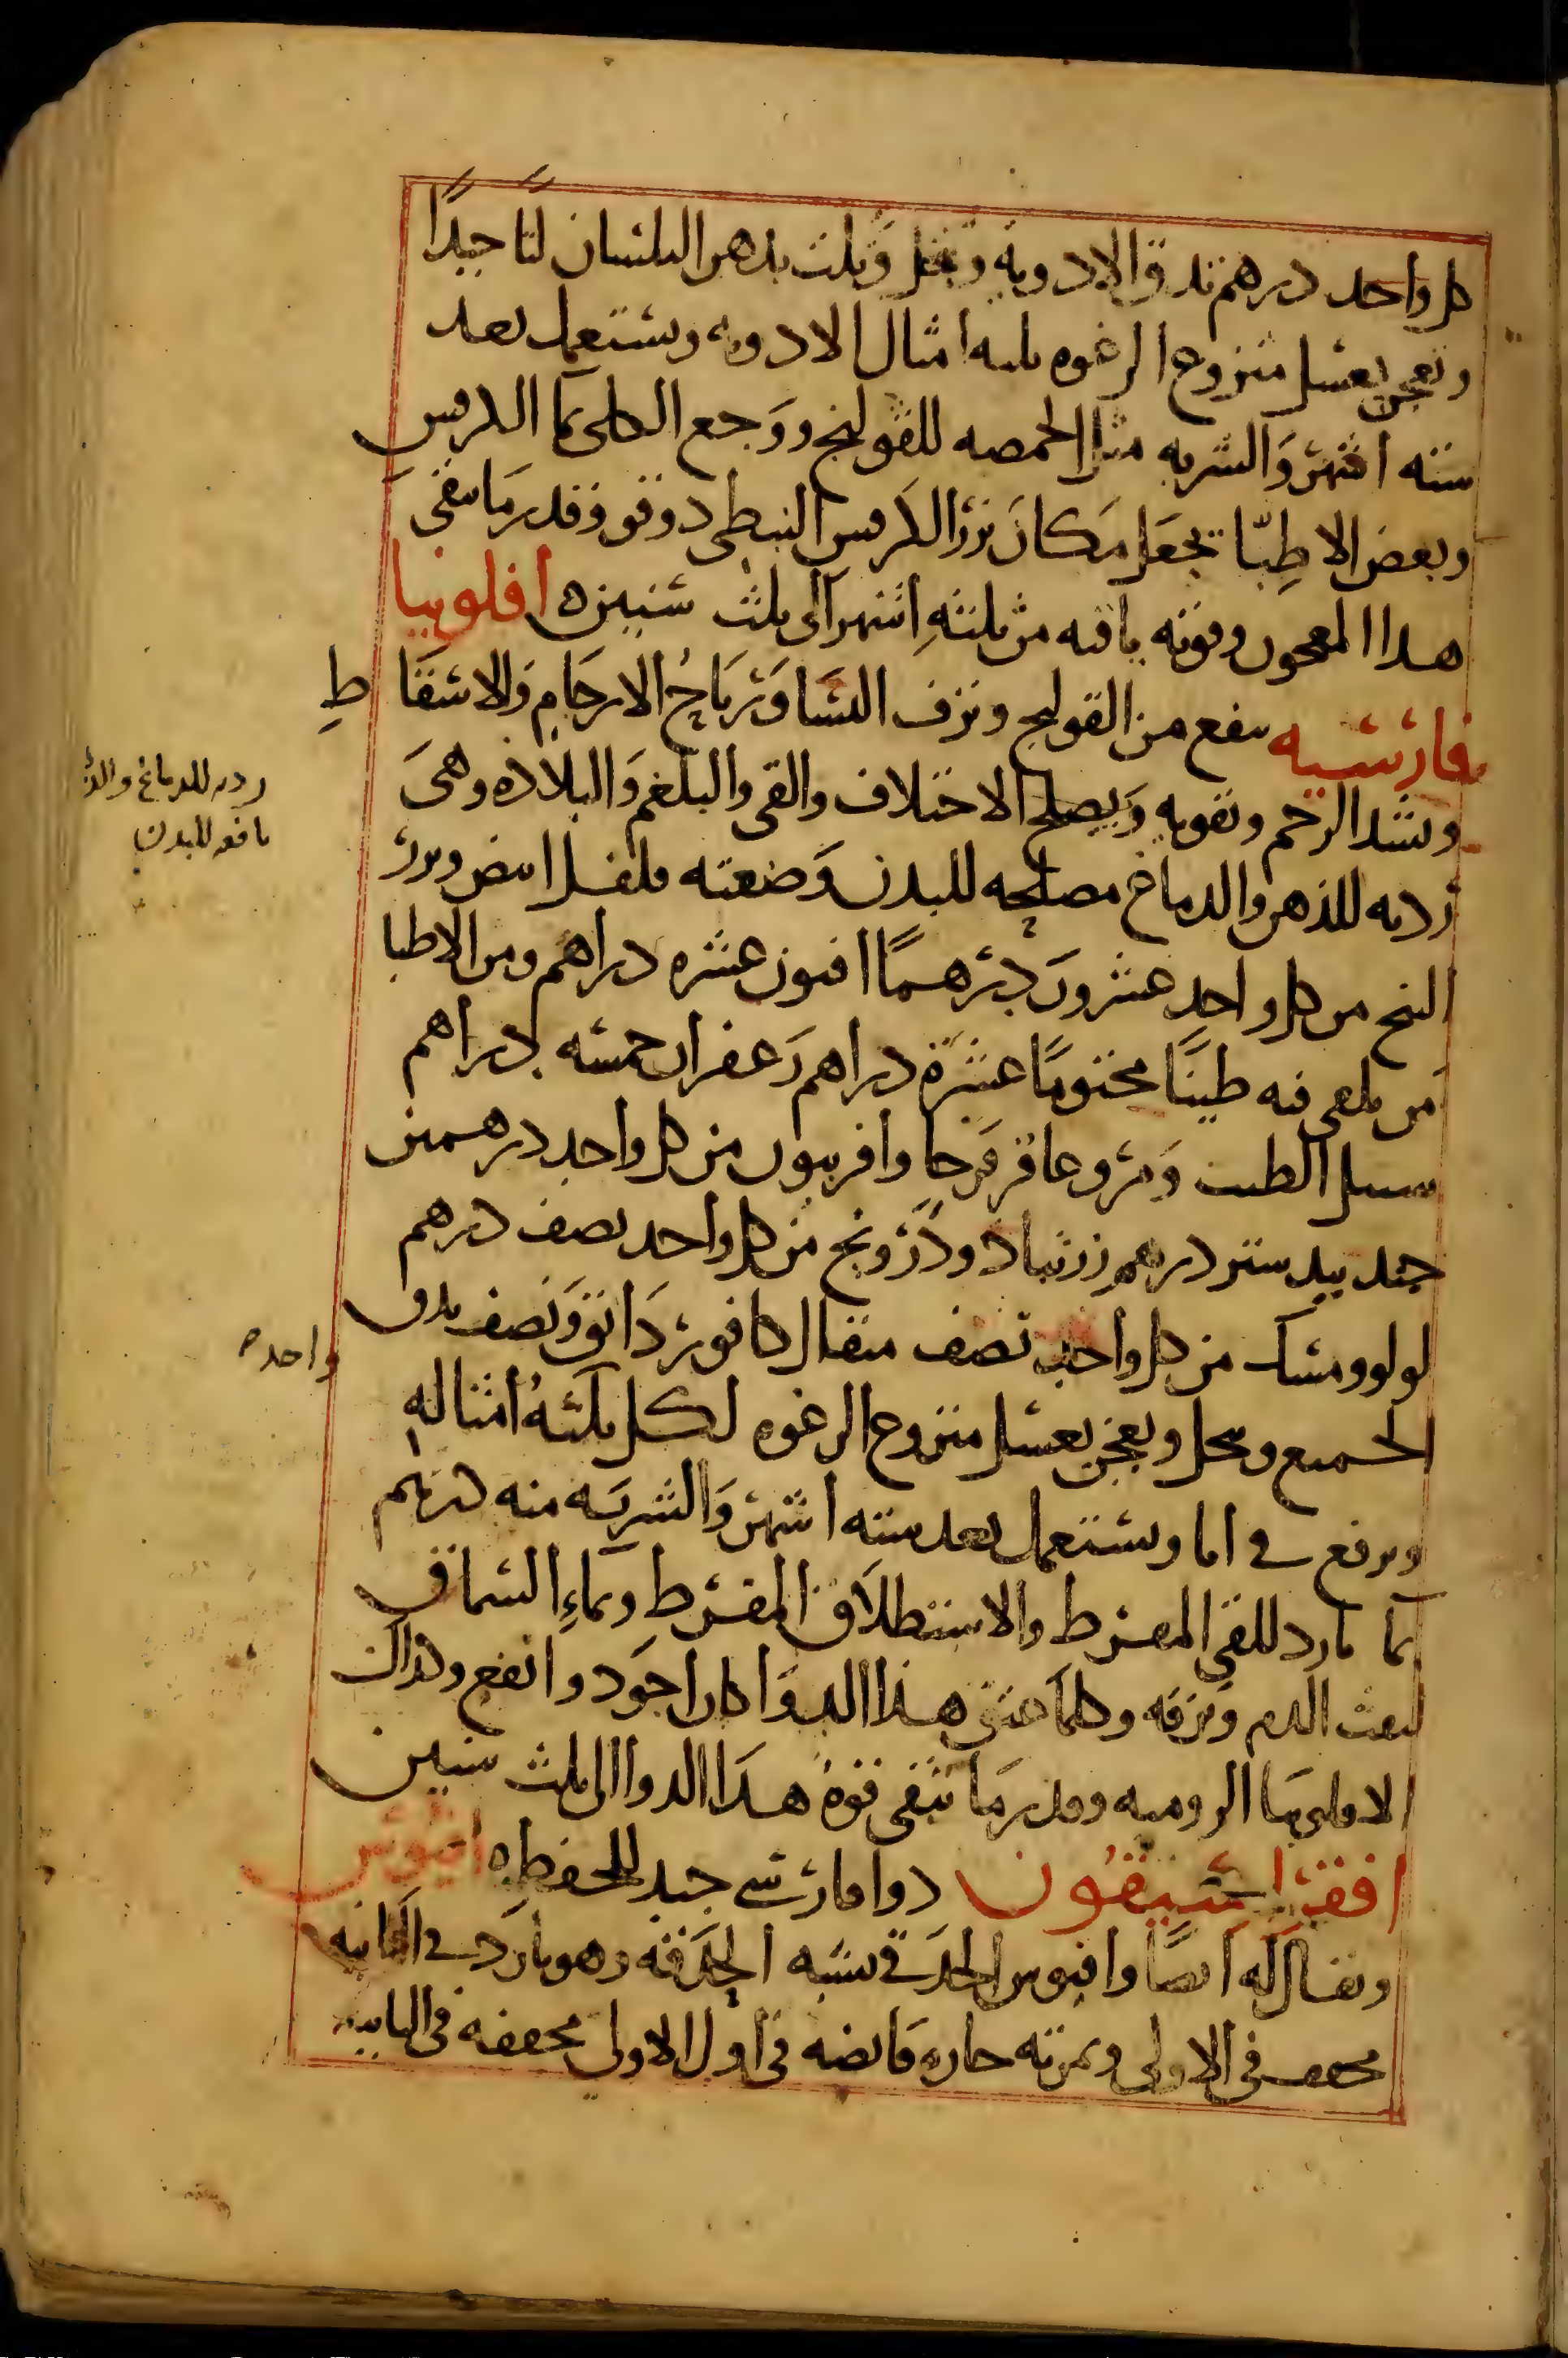 كل واحد درهم تدق الادوية وتنخل وتلت بدهن البلسان لتا جيدًا
وتعجن بعسل منزوع الرغوه ثلثه امثال الادويه ويستعمل بعد
سته اشهر والشربه مثل الحمصه للقولنج ووجع الكلى بما الكرفس
وبعض الاطبّا يجعل مكان بزر الكرفس النبطي دوقو وقدر ما تبقى
هذا المعجون وقوته باقيه من ثلثة اشهر الى ثلث سنين ه افلونيا
فارسيه ينفع من القولنج ونزف النسا ورياح الارحام والاسقاط
وتشد الرحم وتقويه ويصلح الاختلاف والقى والبلغم والبلاده وهي
رديه للذهن والدماغ مصلحه للبدن وصنعته فلفل ابيض وبزر
البنج من كل واحد عشرون درهمًا افيون عشره دراهم ومن الاطبا
من يلقى فيه طينًا مختومًا عشرة دراهم زعفران خمسه دراهم
سنبل الطيب ومر وعاقر قرحا وافربيون من كل واحد درهمين
جند بيد ستر درهم زرنباد ودرونج من كل واحد نصف درهم
لولو ومسك من كل واحد نصف مثقال كافور دانق ونصف يدق
الجميع وينخل ويعجن بعسل منزوع الرغوه لكل ثلثة امثاله
ويرفع في انا ويستعمل بعد سته اشهر والشربه منه درهم
بما بارد للقى المفرط والاستطلاق المفرط وبماء السماق
لنفث الدم ونزفه وكلما عتق هذا الدوا كان اجود وانفع وكذلك
الافلونيا الروميه وقدر ما تبقى قوة هذا الدوا الى ثلث سنين
افقراسيقون دوا فارسي جيد للحفظ ه افيوس
ويقال له ايضًا وافيوس الحدقي شبه الحدقه وهو بارد في الثانيه
مجفف في الاولى وثمرته حاره قابضه في اول الاولى مجففه في الثانيه
رديه للدماغ والذ
نافعه للبدن
واحد ه